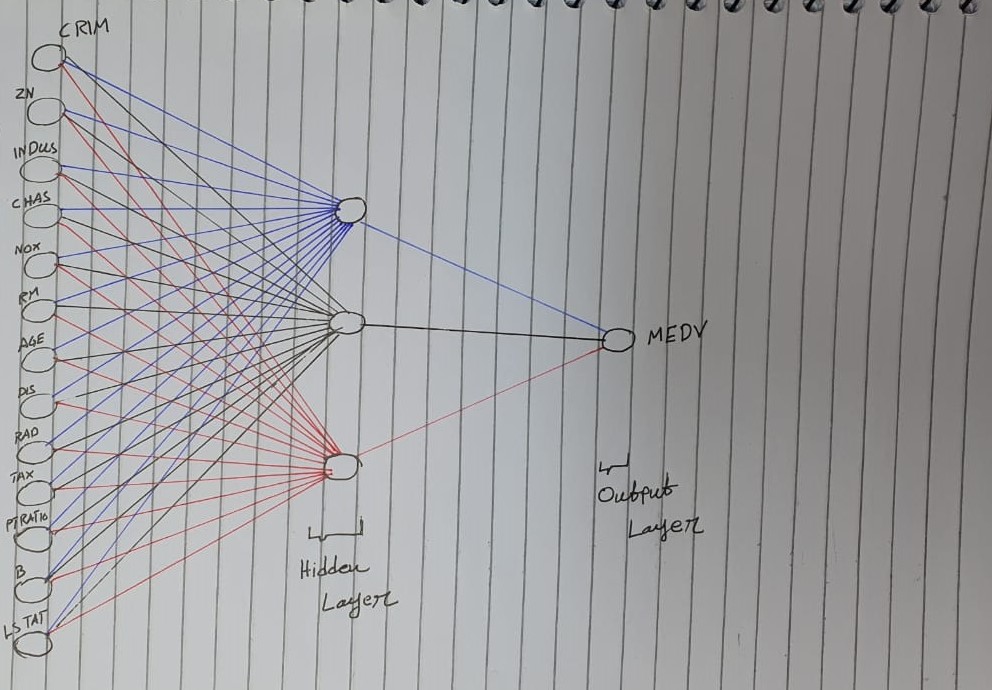 CRIM
ZN
INDUS
CHAS
NOX
RM
AGE
DIS
RAD
TAX
PTRATIO
B
LSTAT
MEDV
Hidden
Layer
Output
Layer